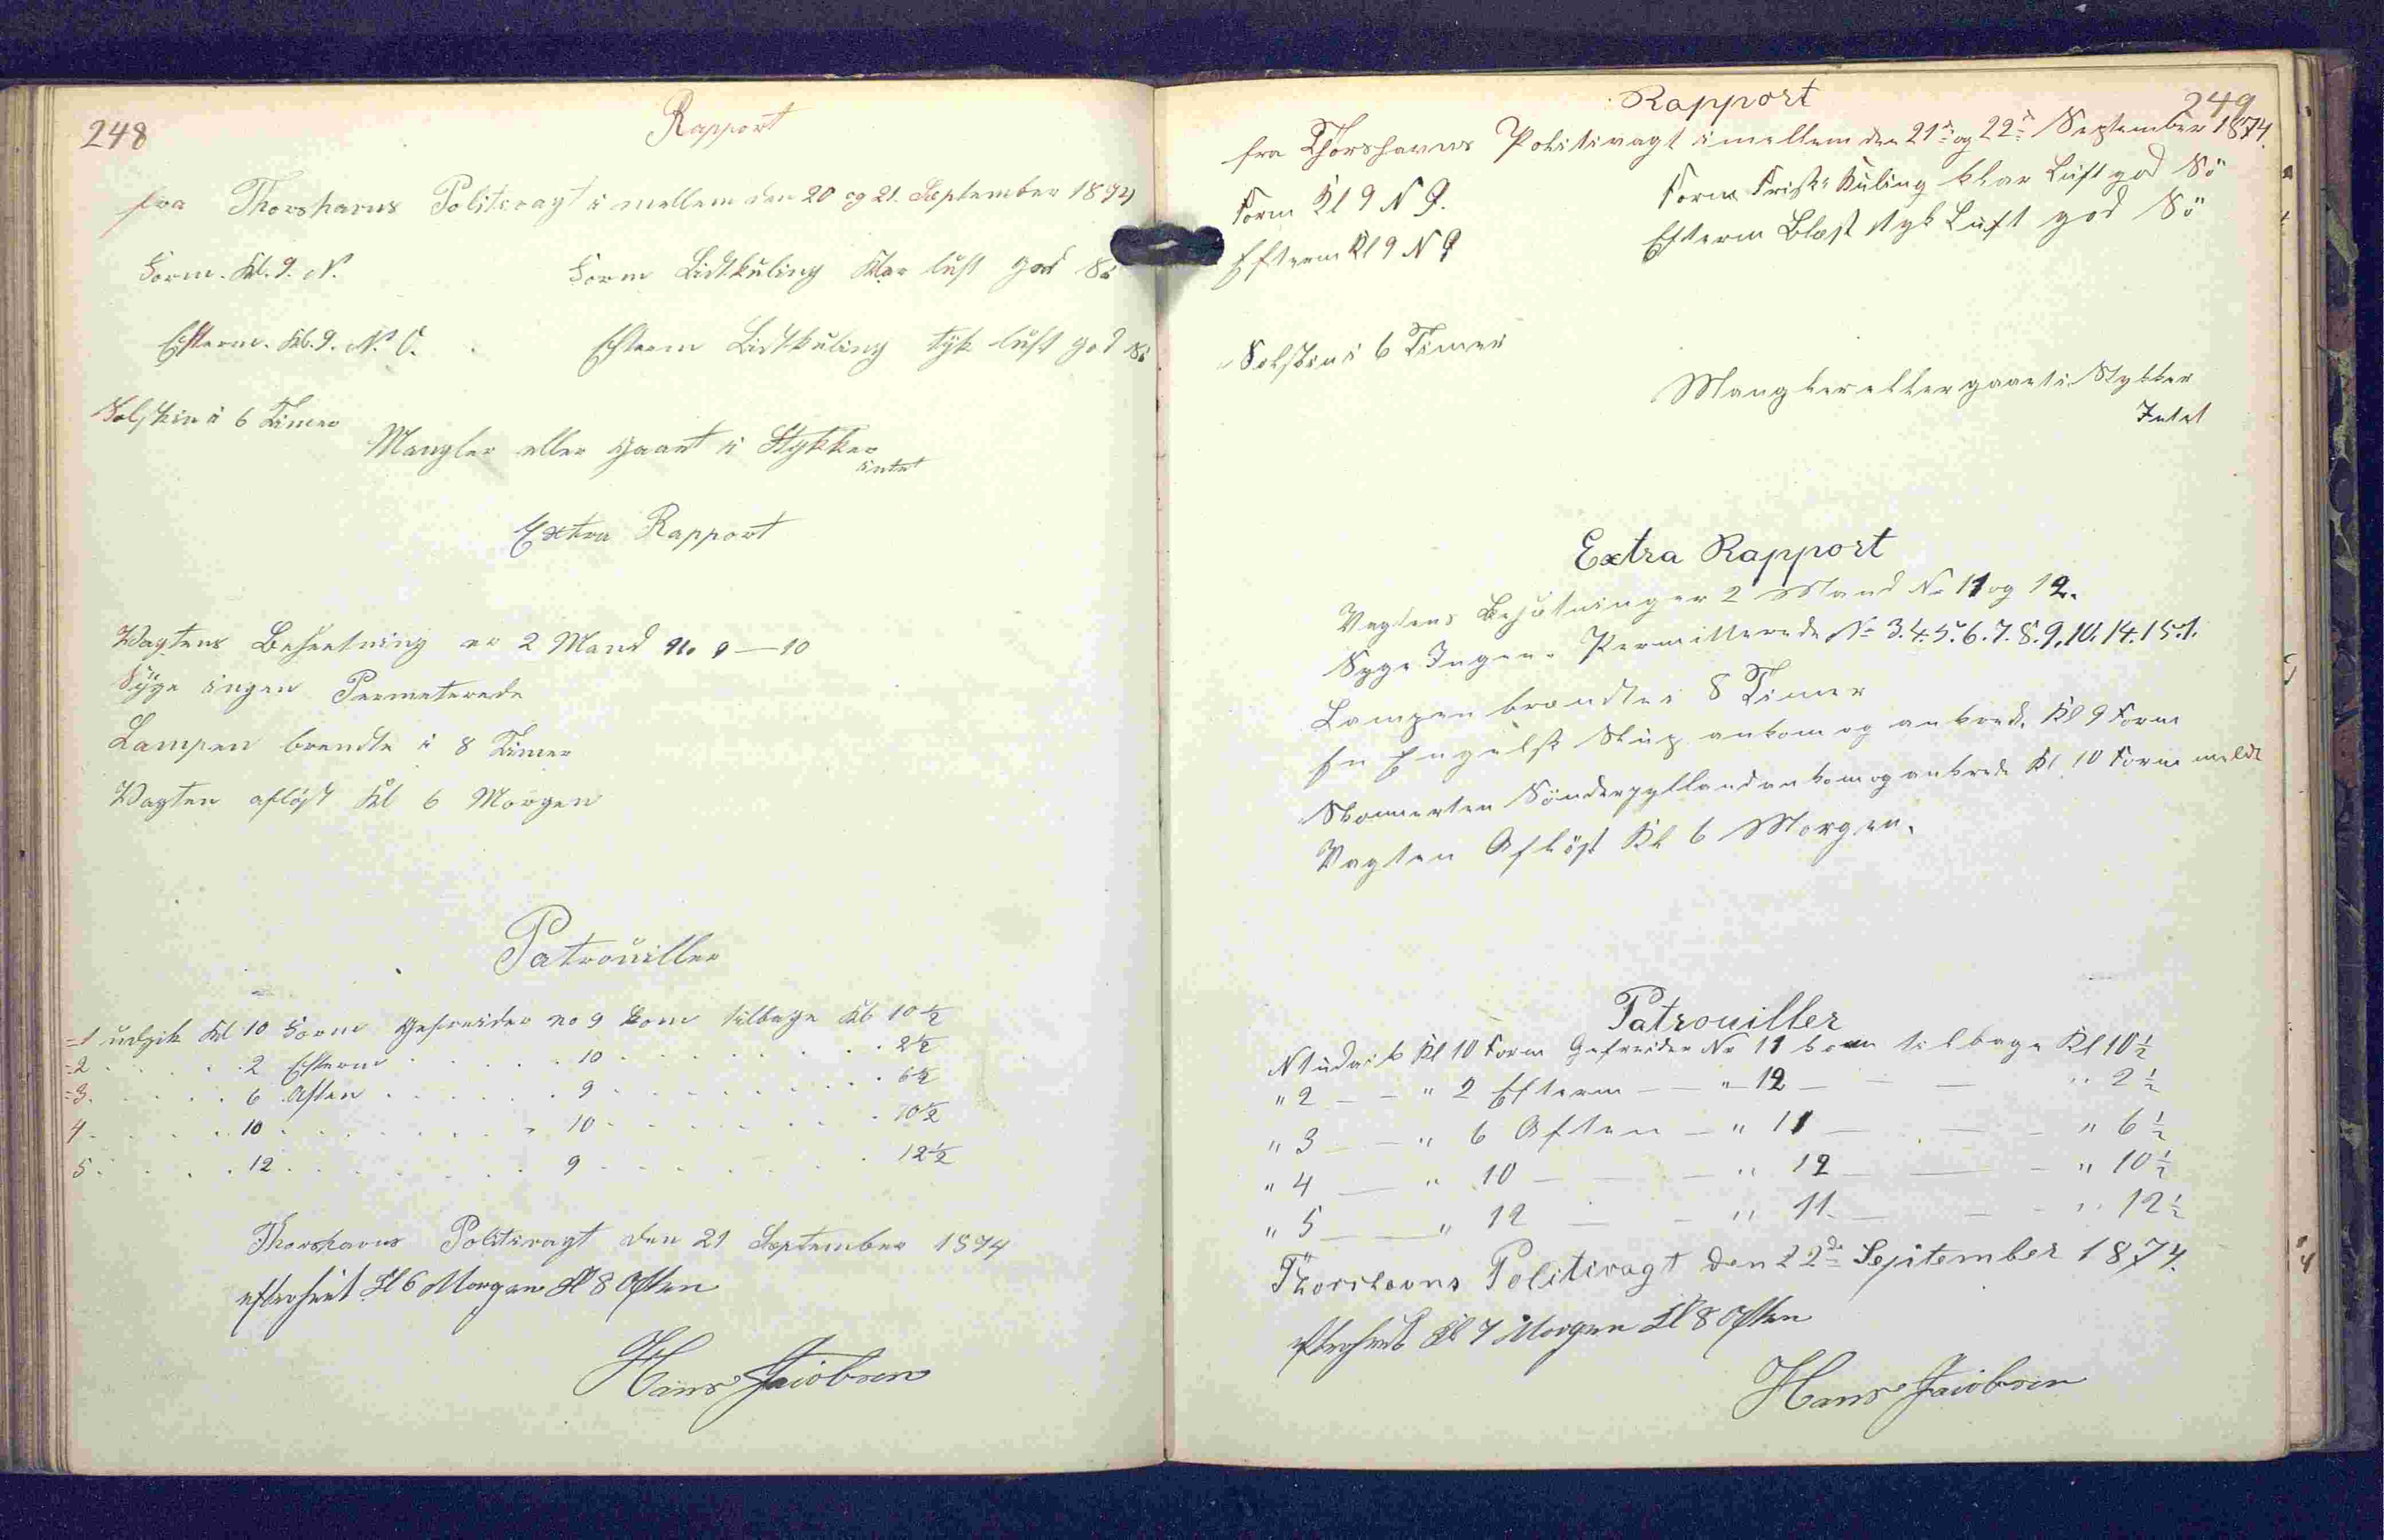 248
Rapport
fra Thorshavns Politivagt i mellem den 20 og 21. September 1874
Form. Kl. 9. N. Form Lidtkuling klar luft god Sö
Efterm. Kl. 9. N. O. Efterm Lidtkuling tyk luft god Sö
Solskin i 6 Timer
Mangler eller gaaet i Stykker
intet
Extra Rapport
Vagtens Besætning er 2 Mand No 9 — 10
Syge ingen Permeterede
Lampen brendte i 8 Timer
Vagten aflöst Kl 6 Morgen
Patrouiller
1 udgik Kl 10 Form Gefreider no 9 kom tilbage Kl 10 1/2
2 . . . . 2 Efterm . . . . 10 . . . . . 2 1/2
3 . . . . 6 Aften . . . . 9 . . . . . 6 1/2
4 . . . . 10 . . . . 10 . . . . . 10 1/2
5 . . . . 12 . . . . 9 . . . . . 12 1/2
Thorshavns Politivagt den 21 September 1874
efterseet Kl 6 Morgen Kl 8 Aften
Hans Jacobsen
249
Rapport
fra Thorshavns Politivagt imellem den 21d og 22d September 1874.
Form Kl 9 N O. Form Frisk Kuling klar Luft god Sö
Efterm Kl 9 N O Efterm Blæst tyk Luft god Sö
Solskin i 6 Timer
Mangler eller gaaet i Stykker
Intet
Extra Rapport
Vagtens Besætning er 2 Mand No 11 og 12.
Syge Ingen. Permitterede No 3. 4. 5. 6. 7. 8. 9. 10. 14. 15. 1.
Lampen brændte i 8 Timer
En Engelsk Skip ankom og ankrede Kl 9 Form
Skonnerten Sönderjylland ankom og ankrede Kl 10 Form meldt
Vagten Aflöst Kl 6 Morgen.
Patrouiller
N 1 udgik Kl 10 Form Gefreider No 11 kom tilbage Kl 10 1/2
" 2 — — " 2 Efterm — — " 12 — — — " 2 1/2
" 3 — — " 6 Aften — " 11 — — — " 6 1/2
" 4 — " 10 — — — " 12 — — — " 10 1/2
" 5 — " 12 — — " 11 — — — " 12 1/2
Thorshavns Politivagt den 22de September 1874.
efterseet Kl 7 Morgen Kl 8 Aften
Hans Jacobsen